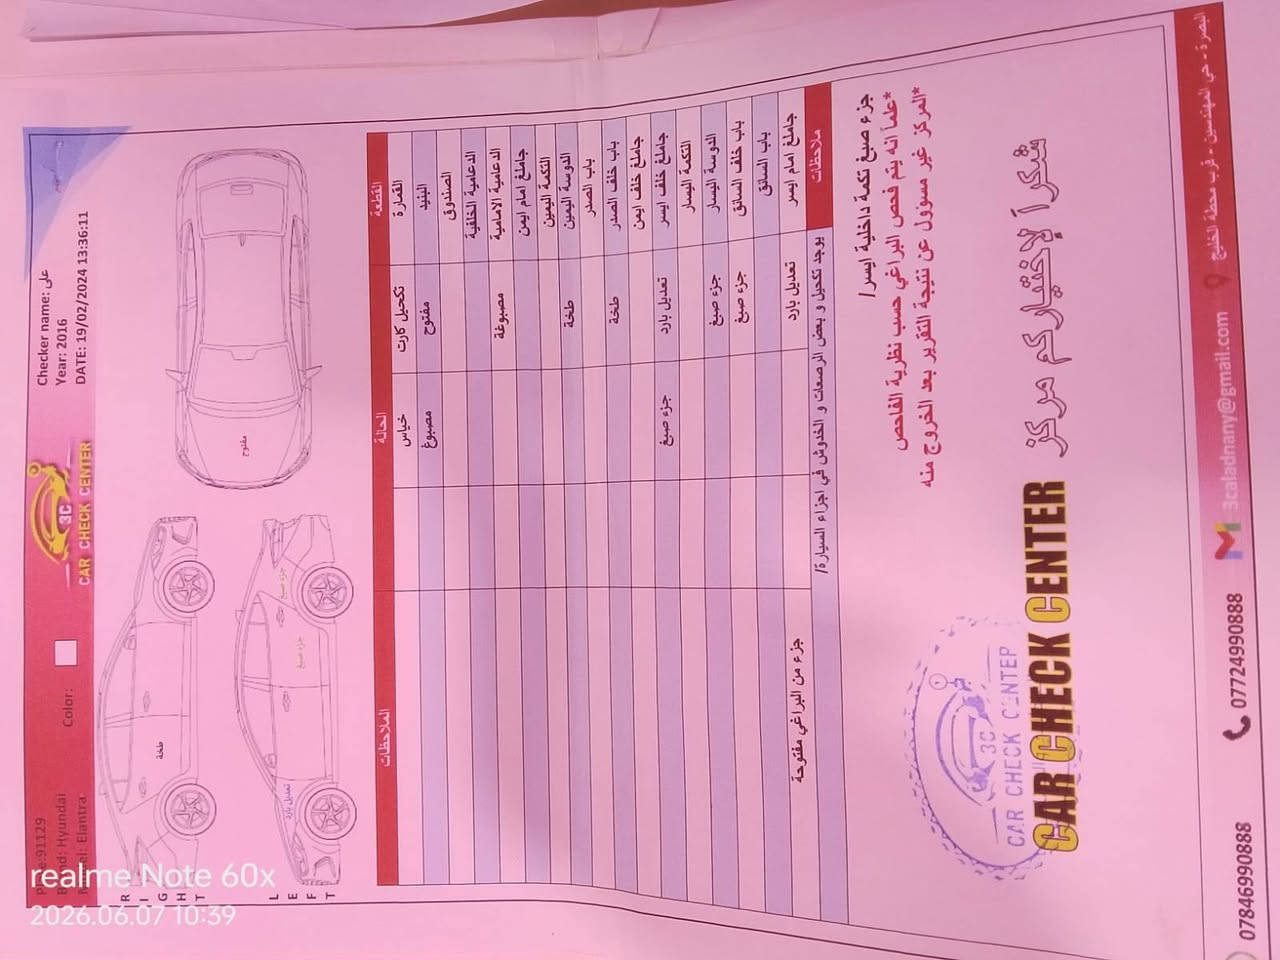 Plate:91129
Brand: Hyundai
Model: Elantra
Color:
3C
CAR CHECK CENTER
Checker name: على
Year: 2016
DATE: 19/02/2024 13:36:11
RIGHT
طخة
LEFT
تعديل بارد
جزء صبغ
جزء صبغ
مفتوح
القطعة الحالة الملاحظات
القمارة تكحيل كارت خياس
البنيد مفتوح مصبوغ
الصندوق
الدعامية الخلفية
الدعامية الامامية مصبوغة
جاملغ امام ايمن
النكمة اليمين
الدوسة اليمين طخة
باب الصدر
باب خلف الصدر طخة
جاملغ خلف ايمن
جاملغ خلف ايسر تعديل بارد جزء صبغ
النكمة اليسار
الدوسة اليسار جزء صبغ
باب خلف السائق جزء صبغ
باب السائق
جاملغ امام ايسر تعديل بارد جزء من البراغي مفتوحة
ملاحظات يوجد تكحيل و بعض الرصعات و الخدوش في اجزاء السيارة/
جزء صبغ نكمة داخلية ايسر/
*علماً انه يتم فحص البراغي حسب نظرية الفاحص
*المركز غير مسؤول عن نتيجة التقرير بعد الخروج منه
شكراً لإختياركم مركز
CAR CHECK CENTER
3C
CAR CHECK CENTER
07846990888
07724990888
3caladnany@gmail.com
البصرة - حي المهندسين - قرب محطة الخليج
realme Note 60x
2026.06.07 10:39